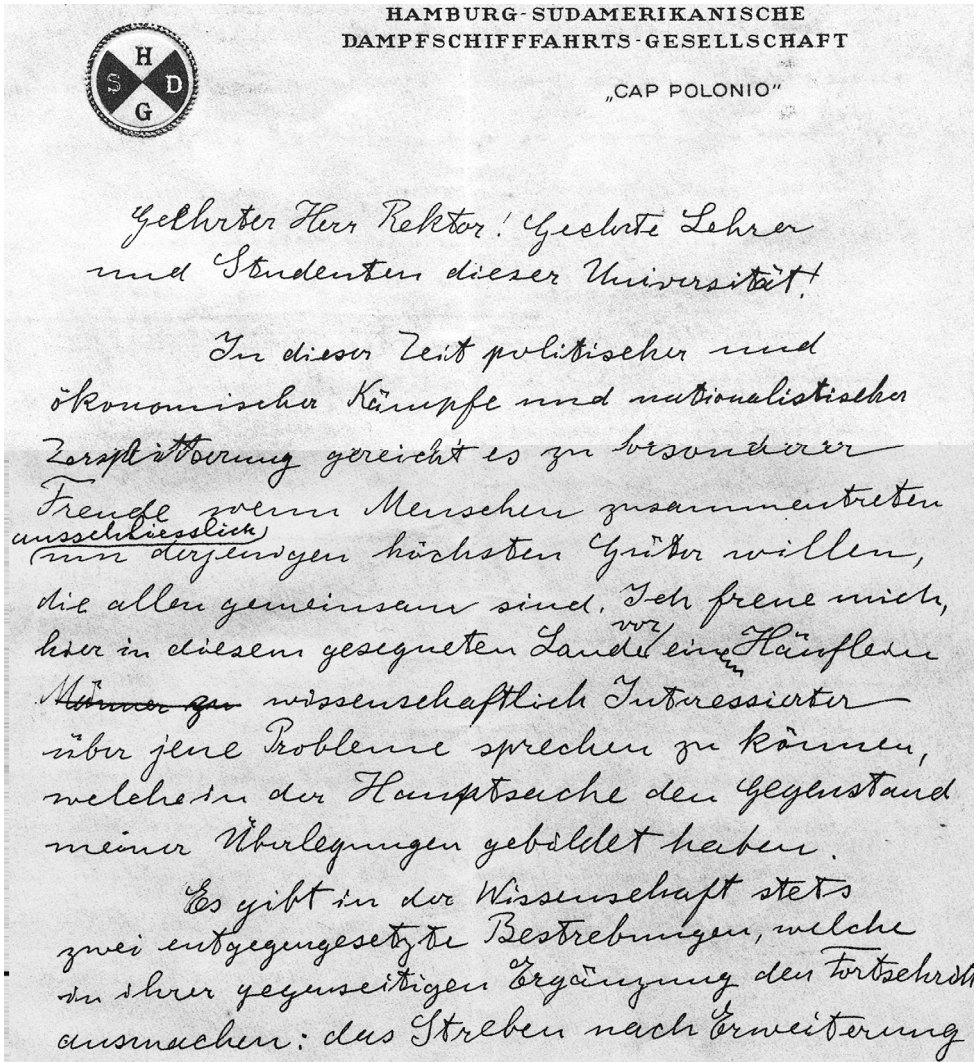 HAMBURG-SÜDAMERIKANISCHE
DAMPFSCHIFFFAHRTS-GESELLSCHAFT
H
S D
G
„CAP POLONIO”
Geehrter Herr Rektor! Geehrte Lehrer
und Studenten dieser Universität!
In dieser Zeit politischer und
ökonomischer Kämpfe und nationalistischer
Zersplitterung gereicht es zu besonderer
Freude wenn Menschen zusammentreten
ausschliesslich
um derjenigen höchsten Güter willen,
die allen gemeinsam sind. Ich freue mich,
vor
hier in diesem gesegneten Lande einem Häuflein
Männer zu wissenschaftlich Interessierter
über jene Probleme sprechen zu können,
welche in der Hauptsache den Gegenstand
meiner Überlegungen gebildet haben.
Es gibt in der Wissenschaft stets
zwei entgegengesetzte Bestrebungen, welche
in ihrer gegenseitigen Ergänzung den Fortschritt
ausmachen: das Streben nach Erweiterung